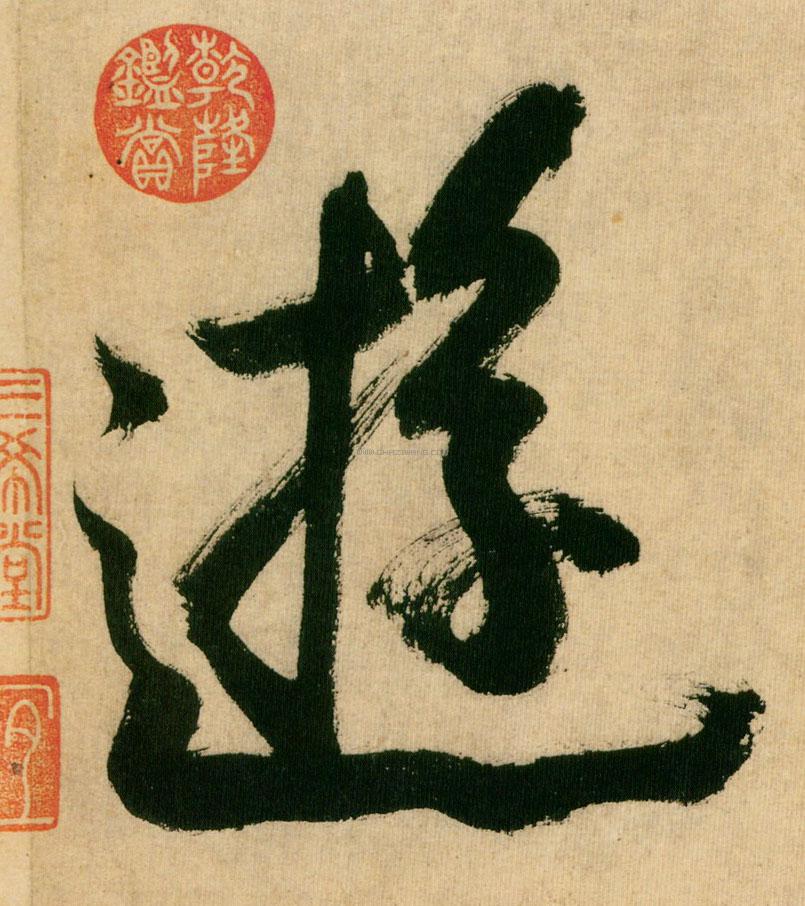 遊
乾隆
鑑賞
三希堂